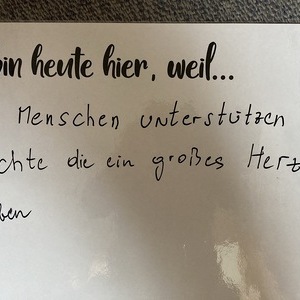 bin heute hier, weil...
Menschen unterstützen
chte die ein großes Herz
ben